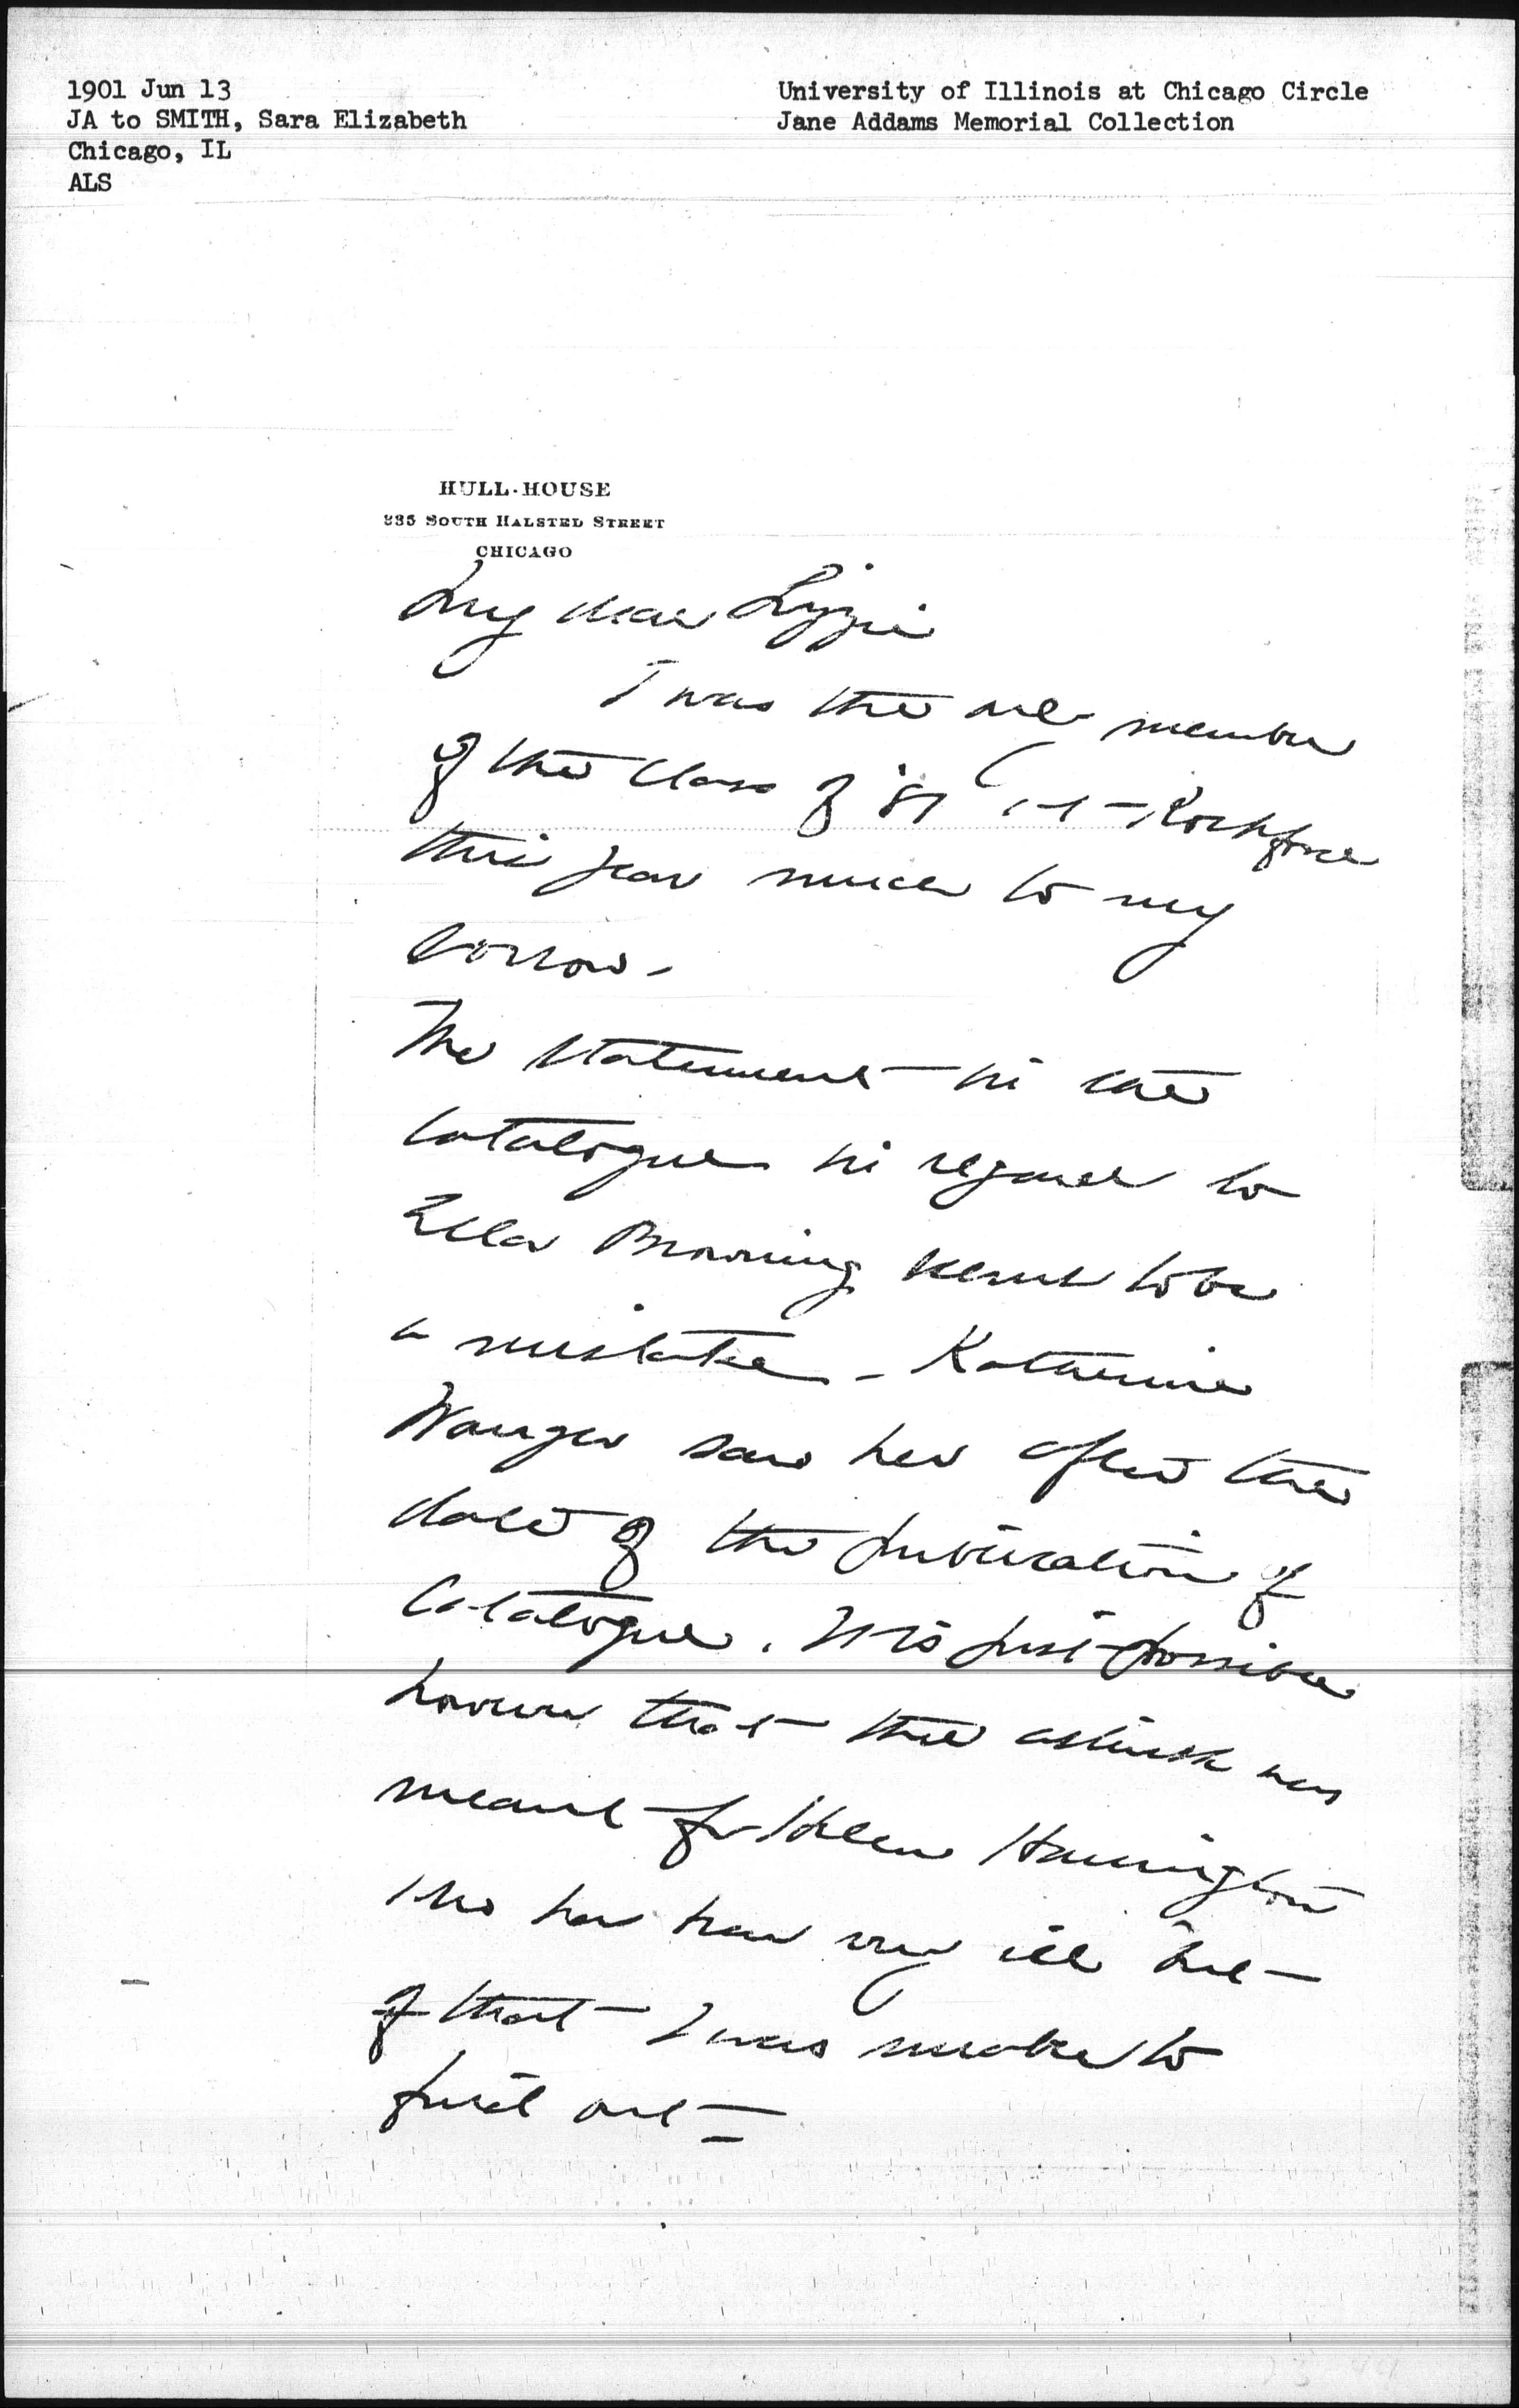 1901 Jun 13
JA to SMITH, Sara Elizabeth
Chicago, IL
ALS
University of Illinois at Chicago Circle
Jane Addams Memorial Collection
HULL-HOUSE
335 SOUTH HALSTED STREET
CHICAGO
My dear Lizzie
I was the only member
of the class of '81 at Rockford
this year much to my
sorrow -
The statement in the
catalogue in regard to
Ella Browning seems to be
a mistake - Katherine
saw her after the
date of the publication of
Catalogue. It is just possible
however that the asterisk was
meant for Helen Harrington
who has been very ill but
of that I was unable to
find out -